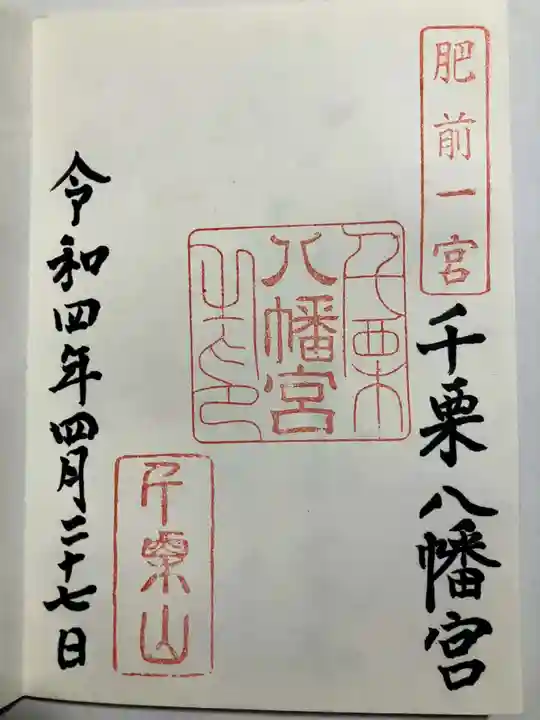 肥前一宮
千栗八幡宮
千栗
八幡宮
之印
千栗山
令和四年四月二十七日